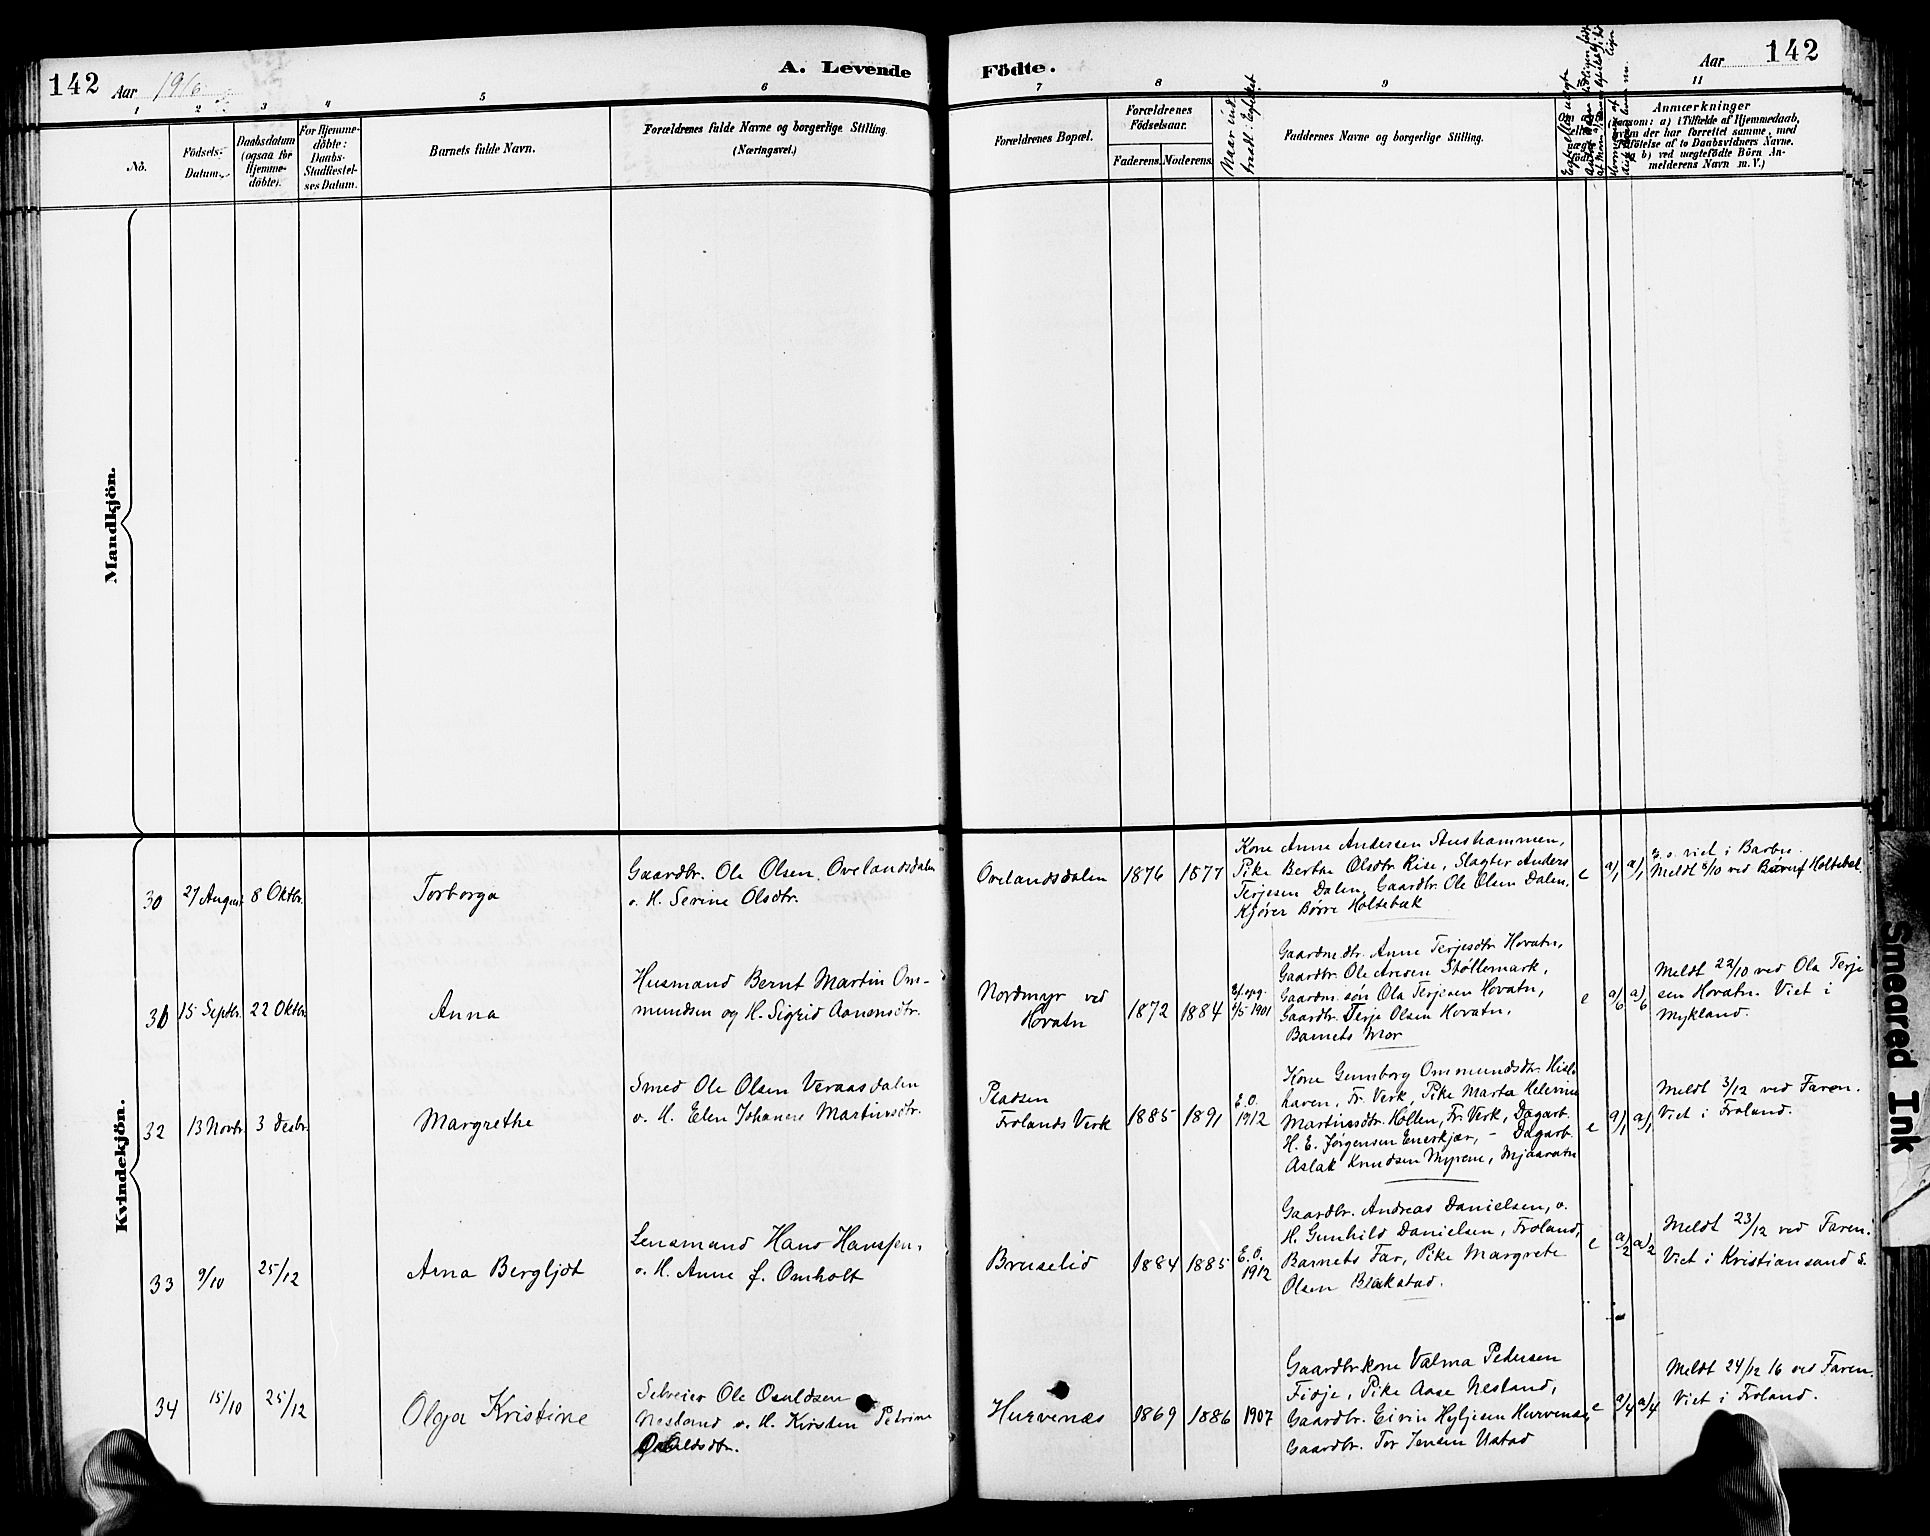 142
Aar 1916
A. Levende
Födte.
Aar
142
1
2
3
4
5
6
7
8
9
11
No.
Födsels-
Datum.
Daabsdatum
(ogsaa for
Hjemme-
döbte).
For Hjemme-
döbte:
Daabs-
Stadfæstel-
ses Datum.
Barnets fulde Navn.
Forældrenes fulde Navne og borgerlige Stilling.
(Næringsvei.)
Forældrenes Bopæl.
Forældrenes
Födselsaar.
Faderens.
Moderens.
Faddernes Navne og borgerlige Stilling.
Anmærkninger
(saasom: a) i Tilfælde af Hjemmedaab,
hvem der har forrettet samme, med
Tilföielse af to Daabsvidners Navne.
b) ved uægtefödte Börn An-
melderens Navn m. V.)
Mandkjön.
Kvindekjön.
30
27 August
8 Oktbr.
Torborga
Gaardbr. Ole Olsen Ovelandsdalen
o. H. Serine Olsdtr.
Ovelandsdalen
1876
1877
Kone Anne Andersen Stushammen,
Pike Berthe Olsdtr Rise, Slagter Anders
Terjesen Dalen, Gaardbr. Ole Olsen Dalen,
Kjører Børre Holtebæk
e
a/1
a/1
E. o. viet i Barbu.
Meldt 6/10 ved Børre Holtebæk
31
15 Septbr.
22 Oktbr.
Anna
Husmand Bernt Martin Om-
mundsen og H. Sigrid Aanensdtr.
Nordmyr ved
Hovatn
1872
1884
1901
Gaardmdtr. Anne Terjesdtr Hovatn,
Gaardbr. Ole Aresen Støllemark,
Gaardm. søn Ola Terjesen Hovatn,
Gaardbr. Terje Olsen Hovatn,
Barnets Mor
e
a/6
a/6
Meldt 22/10 ved Ola Terje
sen Hovatn. Viet i
Mykland.
32
13 Novbr.
3 Desbr.
Margrethe
Smed Ole Olsen Veraasdalen
o. H. Elen Johanne Martinsdtr.
Pladsen
Frolands Verk
1885
1891
E. O.
1912
Kone Gunnborg Ommundsdtr. Hisle
haven, Fr. Verk, Pike Marta Helerine
Martinsdtr. Hollen, Fr. Verk, Dagarb.
H. E. Jørgensen Enerkjær, – Dagarb.
Aslak Knudsen Myrene, Mjaavatn
e
a/1
a/1
Meldt 3/12 ved Faren.
Viet i Froland.
33
9/10
25/12
Arna Bergljot
Lensmand Hans Hanssen,
o. H. Anne f. Omholt
Bruselid
1884
1885
E. O.
1912
Gaardbr. Andreas Danielsen, o.
H. Gunhild Danielsen, Froland,
Barnets Far, Pike Margrete
Olsen Blakstad.
e
a/2
a/2
Meldt 23/12 ved Faren.
Viet i Kristiansand S.
34
15/10
25/12
Olga Kristine
Selveier Ole Osuldsen
Nestand o. H. Kirsten Petrine
Osuldsdtr.
Hurvenæs
1869
1886
1907
Gaardbrkone Valma Pedersen
Fidje, Pike Aase Nesland,
Gaardbr. Eivin Hyljesen Hurvenæs,
Gaardbr. Tor Jensen Ustad
e
a/4
a/4
Meldt 24/12 16 ved Faren.
Viet i Froland.
Smeared Ink